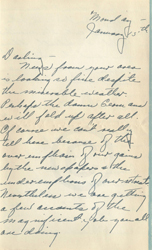 Monday
January 15th
Darling -
News from your area
is looking so fine despite
the miserable weather.
Perhaps the damn Germans
will fold up after all.
Of course we can't really
tell here because of the
over-emphasis of our gains
by the newspapers &
Nevertheless we are getting
a full account of the
way
are doing.